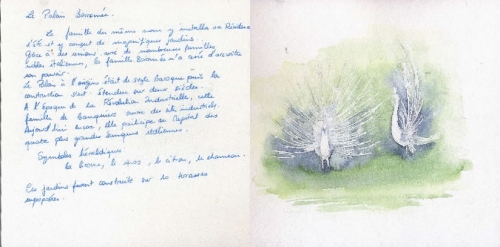 Le Palais Borromée.
La famille du même nom y installa sa Résidence
d'été et y conçut de magnifiques jardins.
Grâce à des unions avec de nombreuses familles
nobles Italiennes, la famille Borromée n'a cessé d'accroître
son pouvoir.
Le Palais à l'origine était de style Baroque puis la
construction s'est étendue sur deux siècles.
A l'Epoque de la Révolution Industrielle, cette
famille de banquiers ouvre des industriels.
Aujourd'hui encore, elle participe au Capital des
quatre plus grandes banques italiennes.
Symboles héraldiques
la licorne, le mors, le citron, le chameau.
Ces jardins furent construits sur 10 terrasses
superposées.